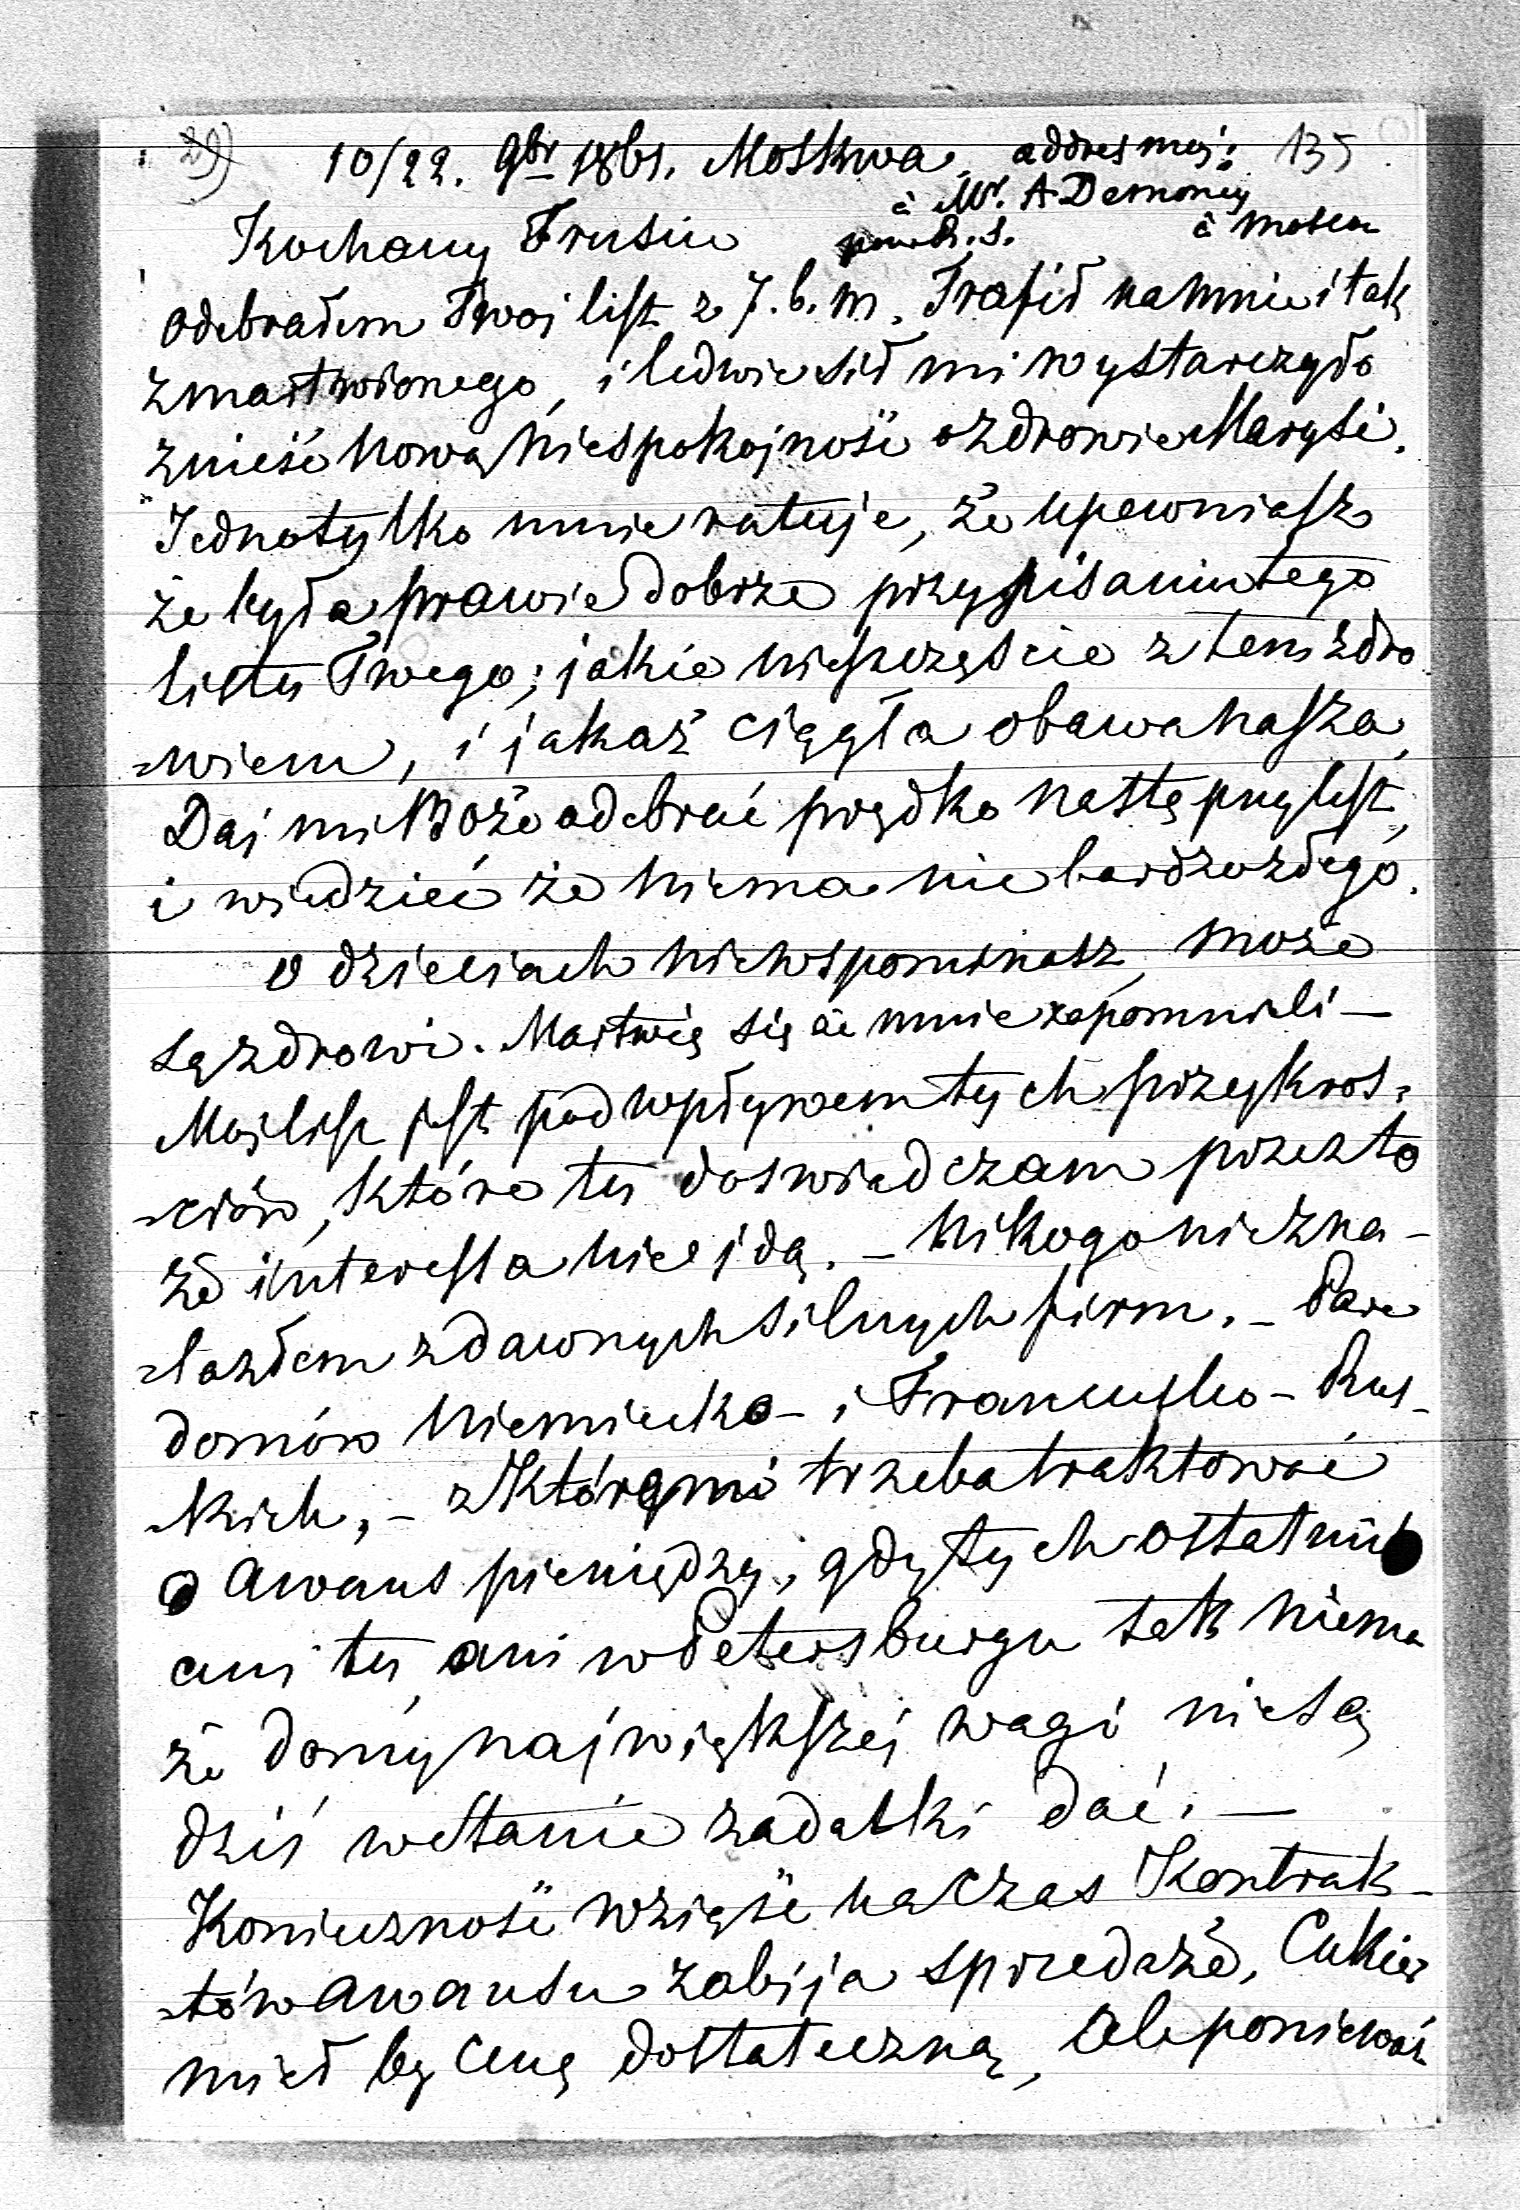 29) 10/22. 9br 1861. Moskwa, addres mój: 135
à Mr. A Demoncy
Kochany Frusiu pour R. S. à Moscou
odebrałem Twoj list z 7. b. m. Trafił na mnie i tak
zmartwionego, i ledwie sił mi wystarczyło
znieść nową niespokojność o zdrowie Marysi.
Jedno tylko mnie ratuje, że upewniasz
że była prawie dobrze przy pisaniu tego
listu Twego; jakie nieszczęście z tem zdro
-wiem, i jakaż ciągła obawa nasza,
Daj mi Boże odebrać prędko następny list,
i wiedzieć że niema nic bardzo złego.
O dzieciach nie wspominasz, może
są zdrowi. Martwię się że mnie zapomnieli —
Mój list jest pod wpływem tych przykroś-
-ciów, które tu doświadczam przez to
że interessa nie idą. — Nikogo nie zna-
-lazłem z dawnych silnych firm. — Parę
domów Niemiecko- i Francusko-Rus-
-kich, — z którymi trzeba traktować
o awans pieniędzy, gdy tych ostatnich
ani tu ani w Petersburgu tak niema
że domy największej wagi nie są
dziś w stanie zadatki dać. —
Konieczność wziąść na czas Kontrak-
-tów awansu zabija sprzedaż, Cukier
miał by cenę dostateczną, ale ponieważ